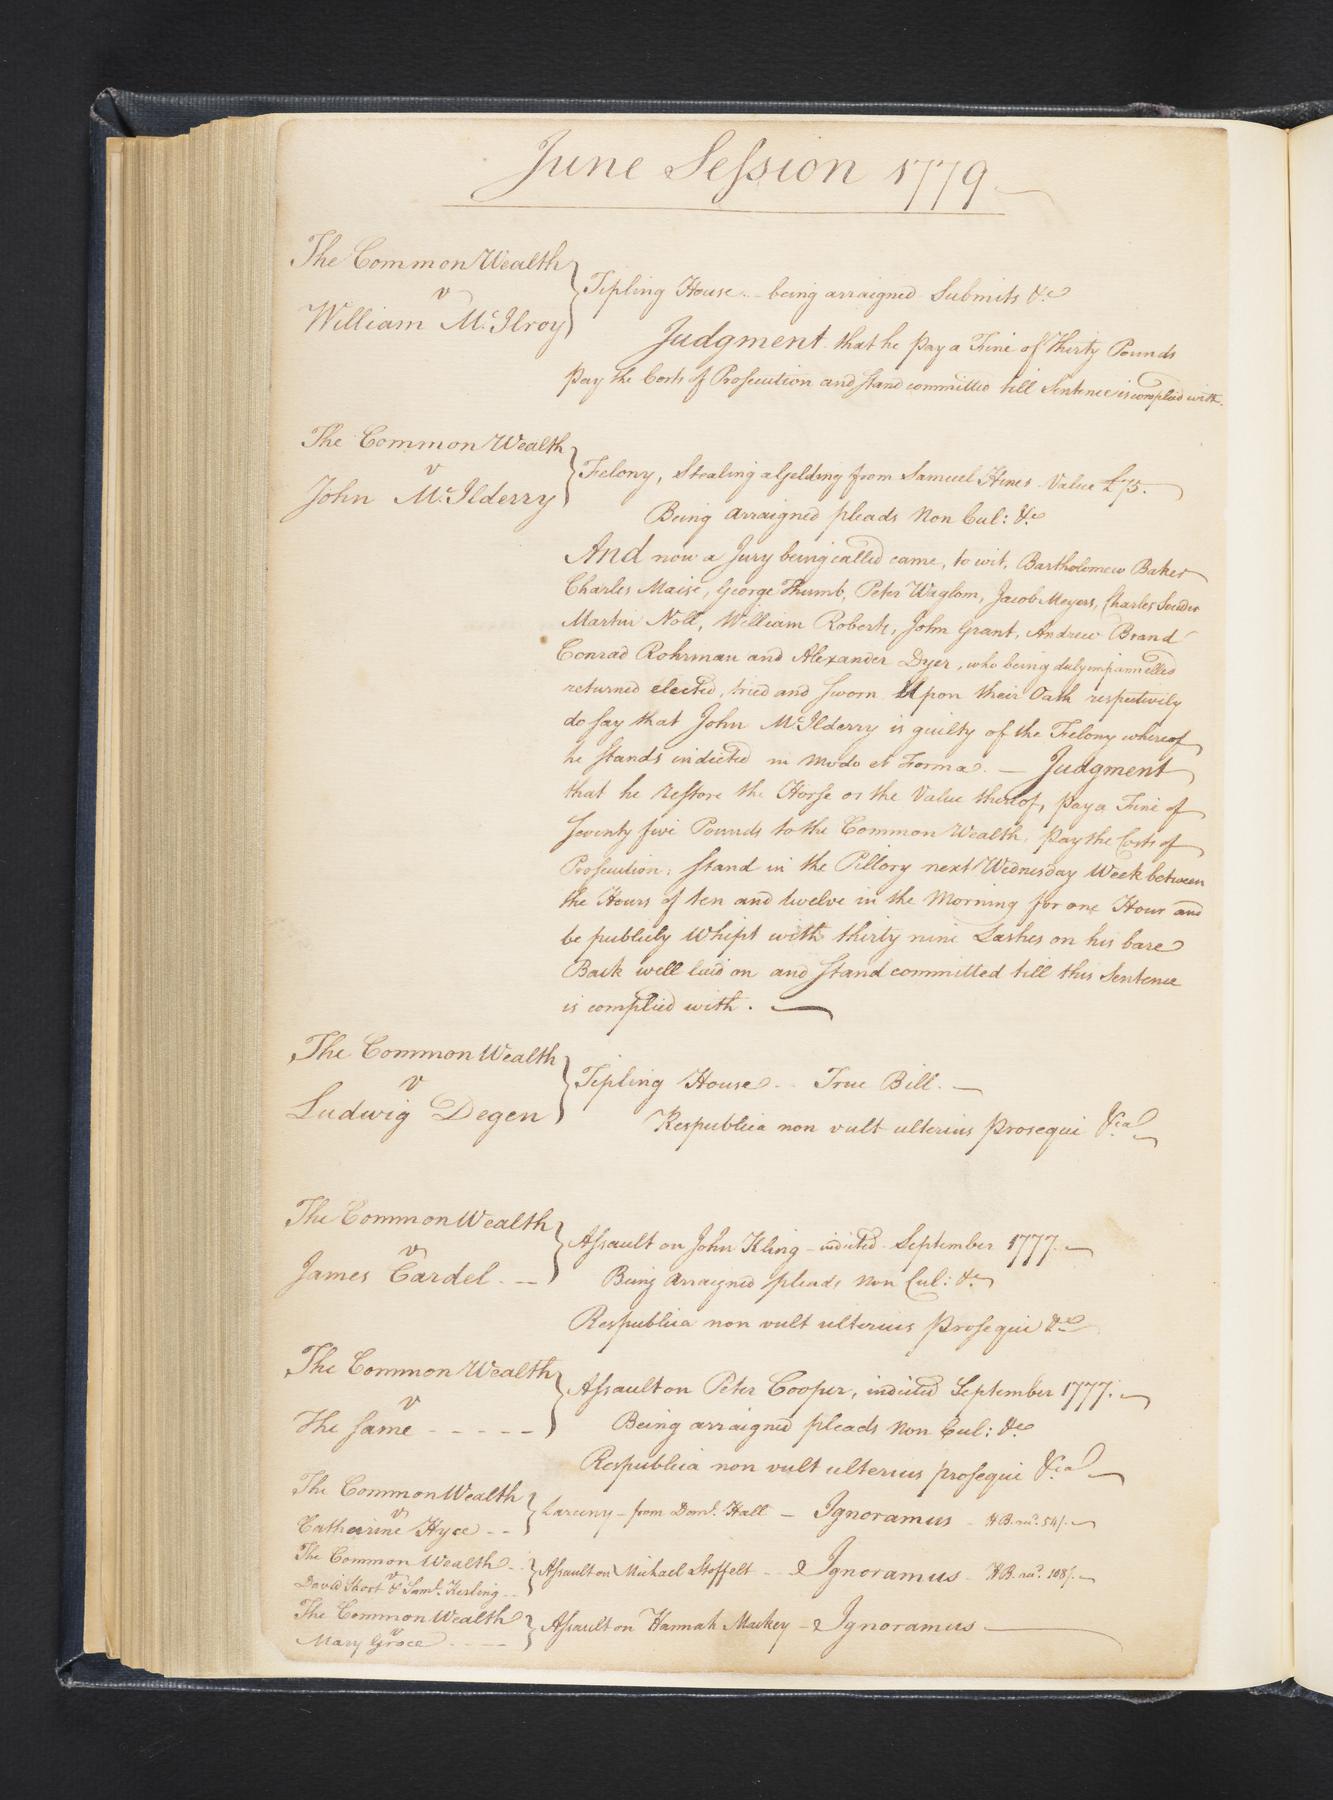 June Session 1779
The Common Wealth
v
William McIlroy
Tipling House - being arraigned Submits &c
Judgment that he pay a Fine of thirty Pounds
pay the Costs of Prosecution and stand committed till Sentence is complied with.
The Common Wealth
v
John McIlderry
Felony, Stealing a Gelding from Samuel Hines Value £75.
Being arraigned pleads Non Cul: &c
And now a Jury being called came, to wit, Bartholomew Baker
Charles Maise, George Thumb, Peter Waglom, Jacob Meyers, Charles Souder
Martin Noll, William Roberts, John Grant, Andrew Brand
Conrad Rohrman and Alexander Dyer, who being duly impannelled
returned elected, tried and sworn Upon their Oath respectively
do say that John McIlderry is guilty of the Felony whereof
he stands indicted in Modo et Forma. — Judgment
that he restore the Horse or the Value thereof, pay a Fine of
Seventy five Pounds to the Common Wealth, pay the Costs of
Prosecution: stand in the Pillory next Wednesday Week between
the Hours of ten and twelve in the Morning for one Hour and
be publicly Whipt with thirty nine Lashes on his bare
Back well laid on and stand committed till this Sentence
is complied with.
The Common Wealth
v
Ludwig Degen
Tipling House - True Bill.
Respublica non vult ulterius prosequi &ca
The Common Wealth
v
James Cardel
Assault on John Kling - indicted September 1777.
Being arraigned pleads Non Cul: &c
Respublica non vult ulterius prosequi &c
The Common Wealth
v
the same
Assault on Peter Cooper, indicted September 1777.
Being arraigned pleads Non Cul: &c
Respublica non vult ulterius prosequi &ca
The Common Wealth
v
Catharine Hyce
Larceny - from Danl. Hall - Ignoramus - HB. 54/.
The Common Wealth
v
David Short & Saml. Kerling
Assault on Michael Stoffelt - Ignoramus HB. 108/.
The Common Wealth
v
Mary Groce
Assault on Hannah Mackey - Ignoramus